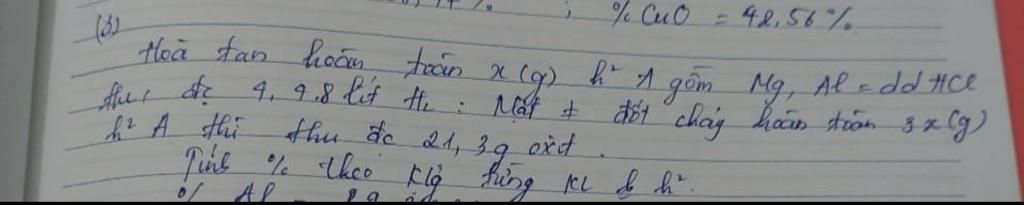 % CuO = 42,56%
(3)
Hoà tan hoàn toàn x(g) h² A gồm Mg, Al = dd HCl
thu đc 4,48 lít H₂ : Mặt ≠ đốt cháy hoàn toàn 3x(g)
h² A thì thu đc 21,3g oxit.
Tính % theo klg từng KL h².
% Al